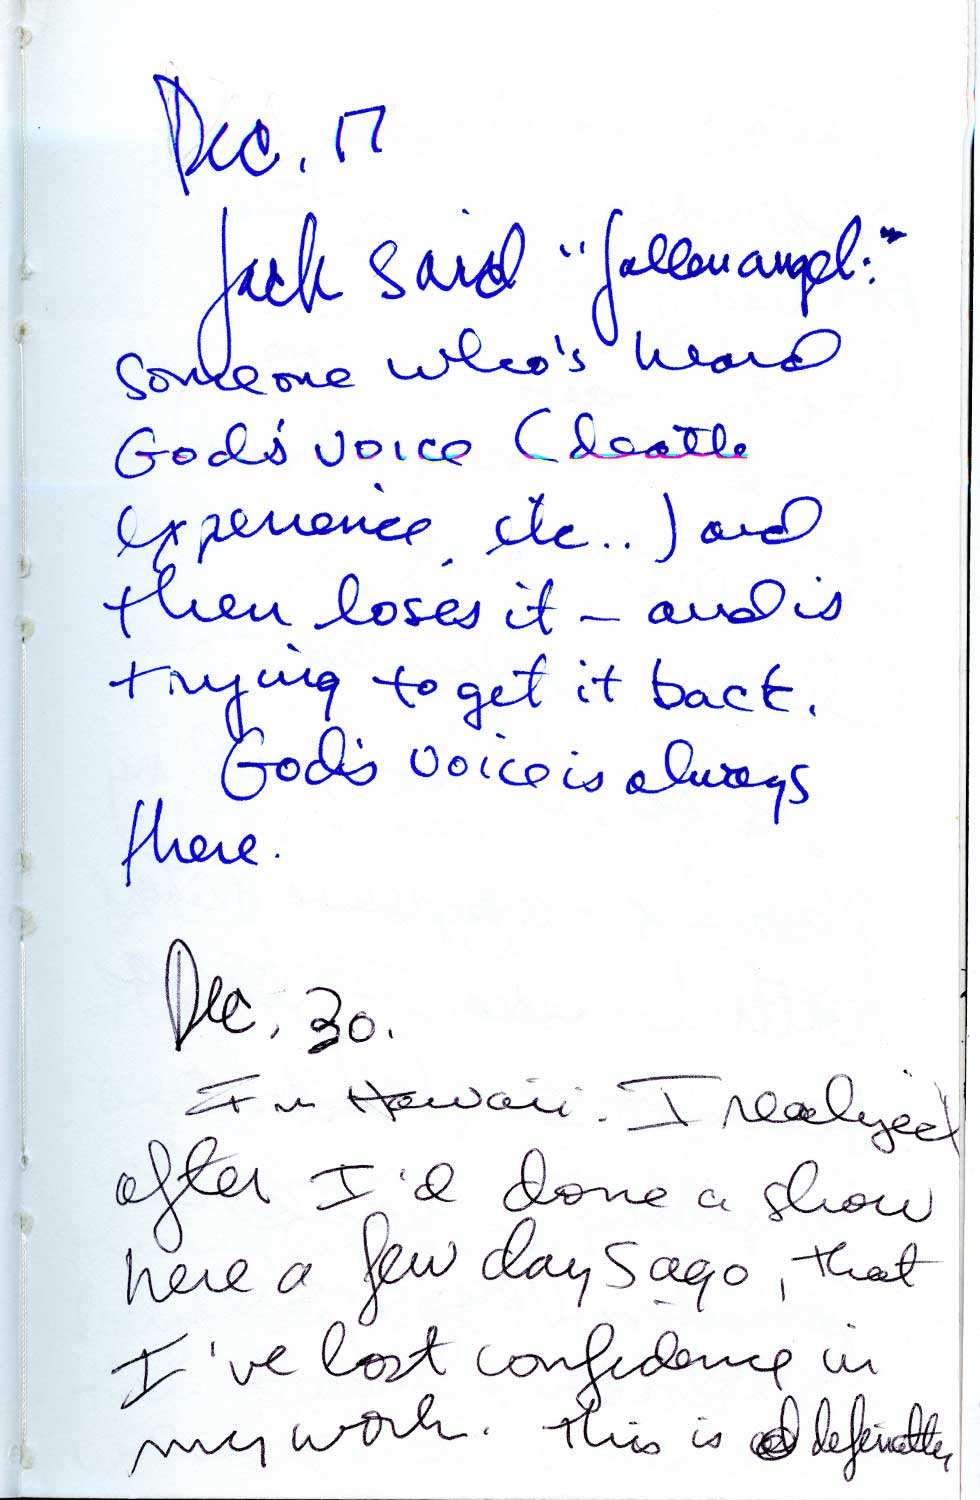 Dec. 17
Jack said "fallen angel:"
someone who's heard
God's voice (death
experience, etc..) and
then loses it – and is
trying to get it back.
God's voice is always
there.
Dec. 30.
I'm Hawaii. I realized
after I'd done a show
here a few days ago, that
I've lost confidence in
my work. This is